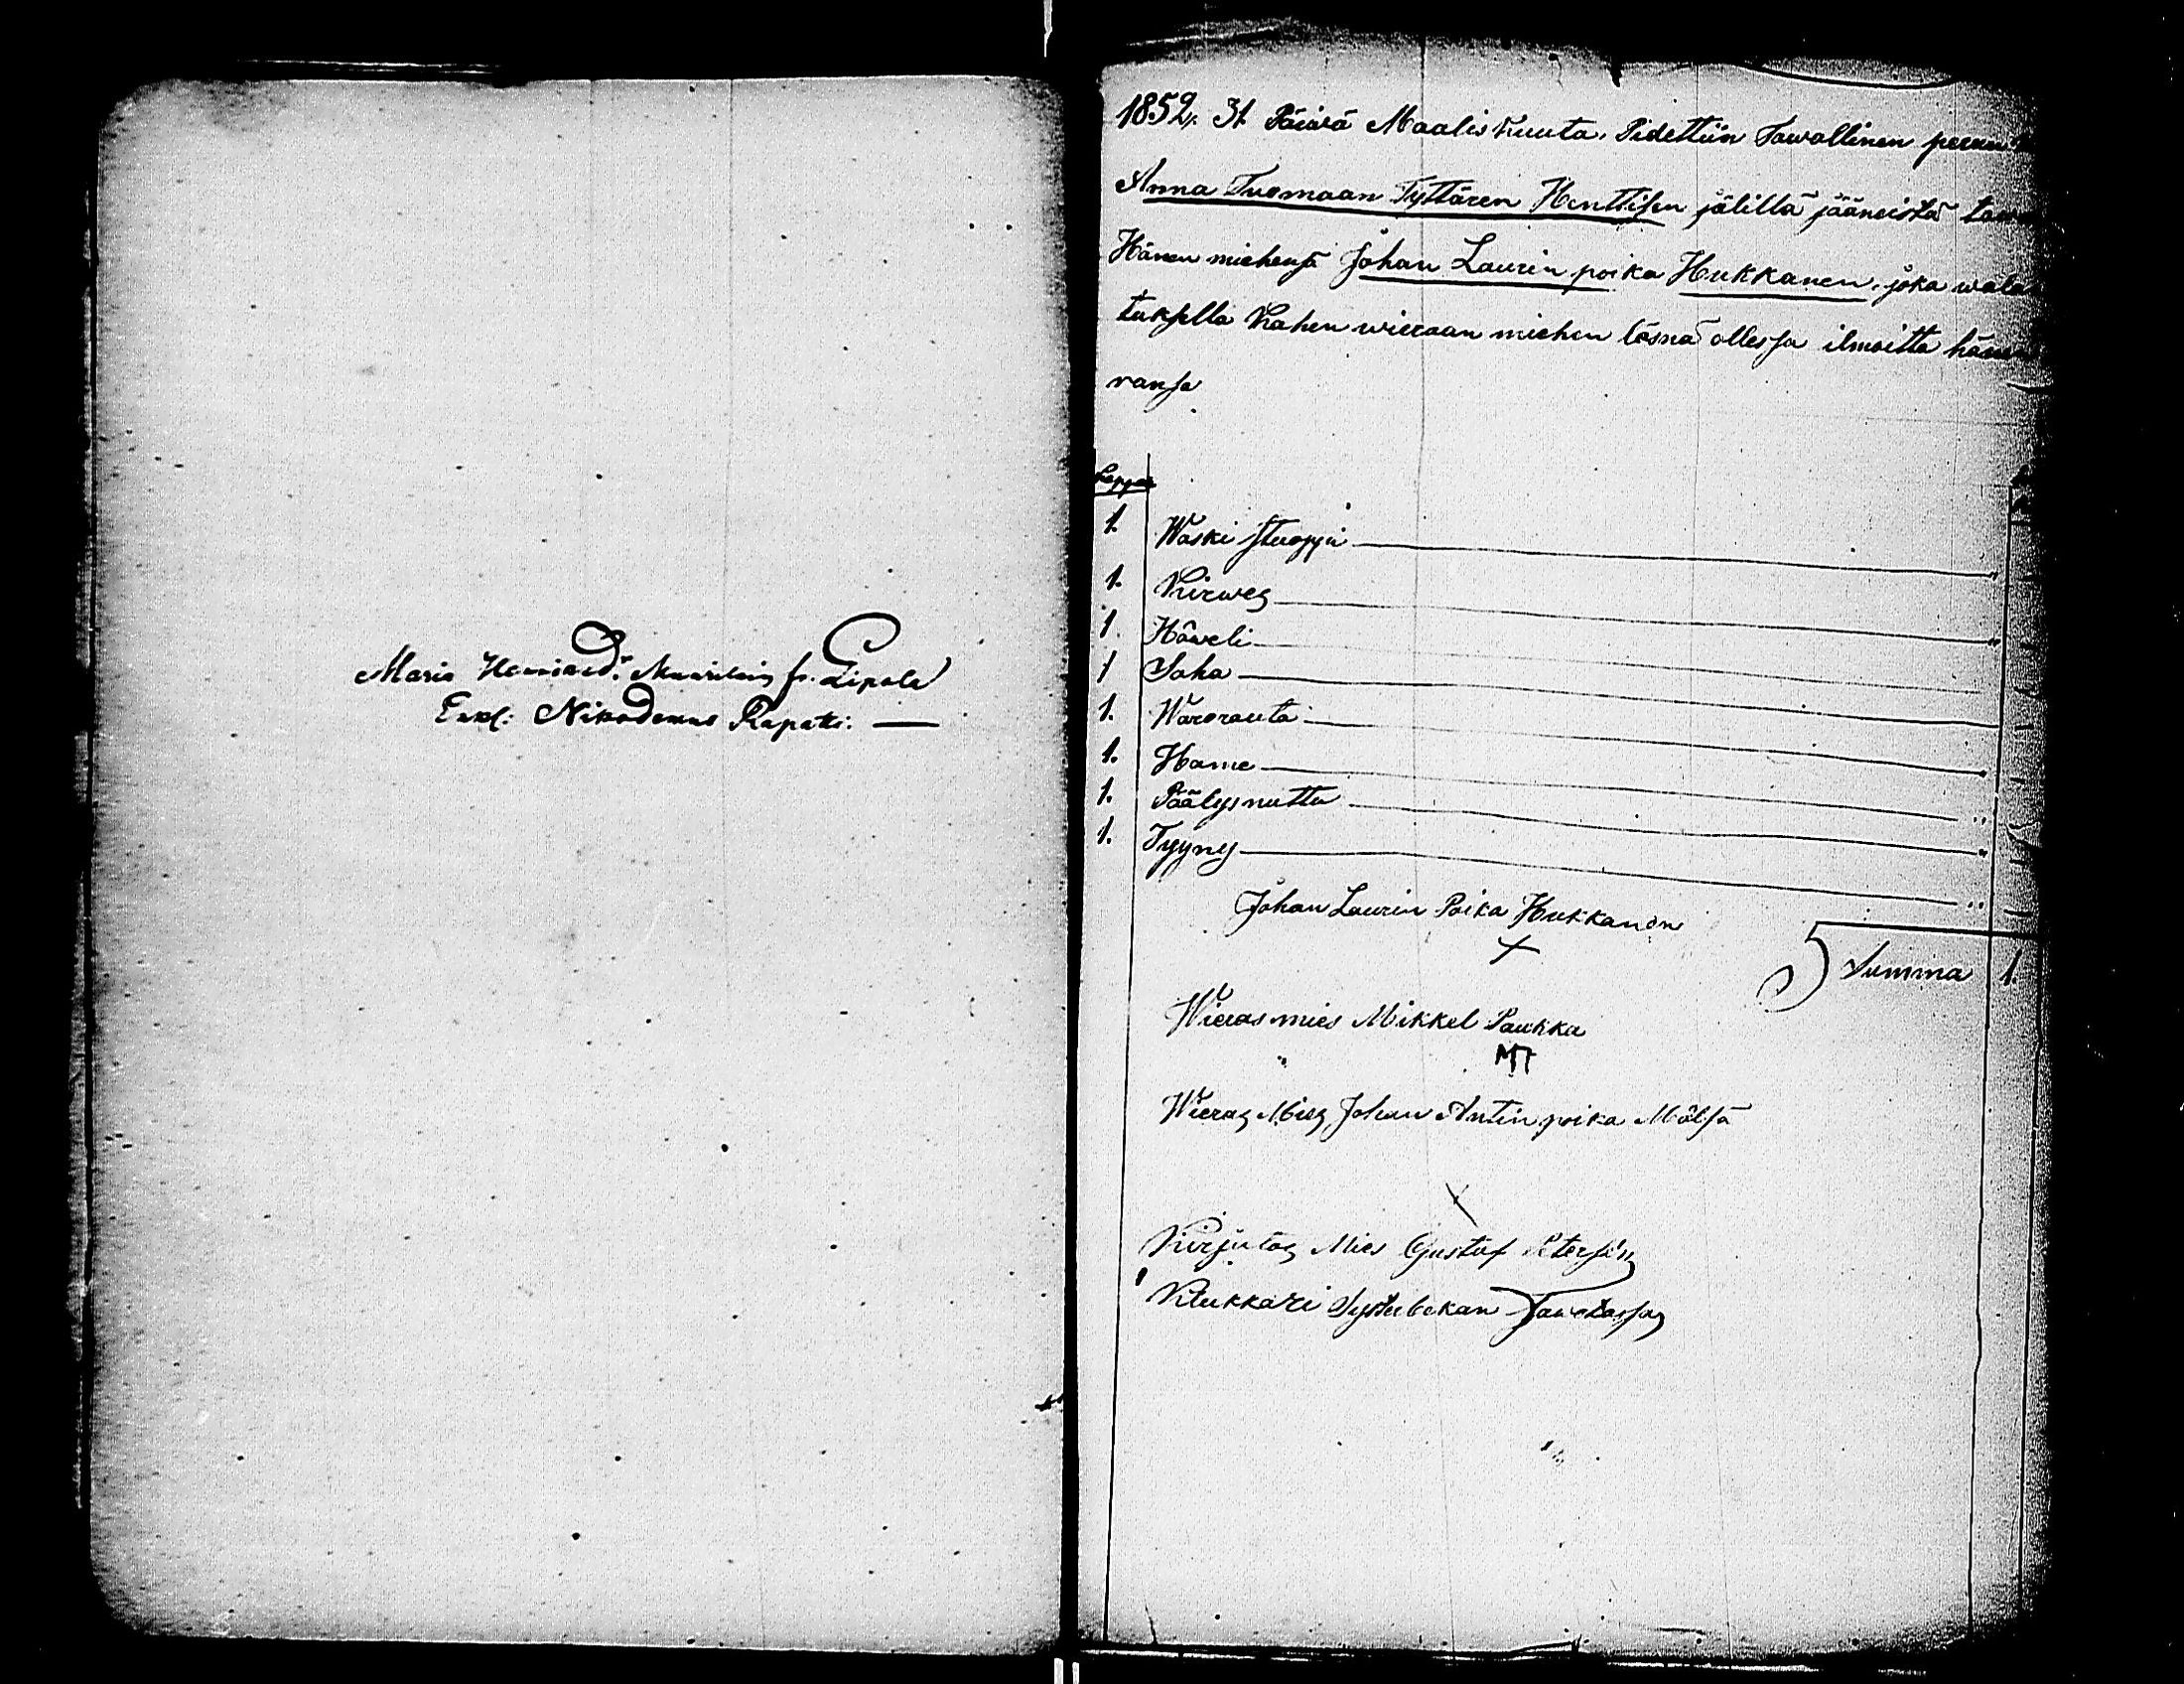 Maria Henricsd:r Muurilain fr. Lipola
Enkl: Nikodemus Rapatti. —
1852. 31. Päivä Maalis Kuuta. Pidettiin Tawallinen perun
Anna Tuomaan Tyttären Henttisen jälillä jääneistä taw
Hänen miehensä Johan Laurin poika Hukkanen, joka wala
tuksella Kahen wieraan miehen läsnä ollessa ilmoitta häne
ransa
Kappa
1. Waski stuoppi
1. Kirwes
1. Höweli
1 Saha
1. Wärorauta
1. Hame
1. Päälysnuttu
1. Tyyny
Johan Laurin Poika Hukkanen
X
Summa 1.
Wieras mies Mikkel Paukka
Wieras Mies Johan Antin poika Mälsä
X
Kirjutas Mies Gustaf Petersin
Klukkari Systerbekan